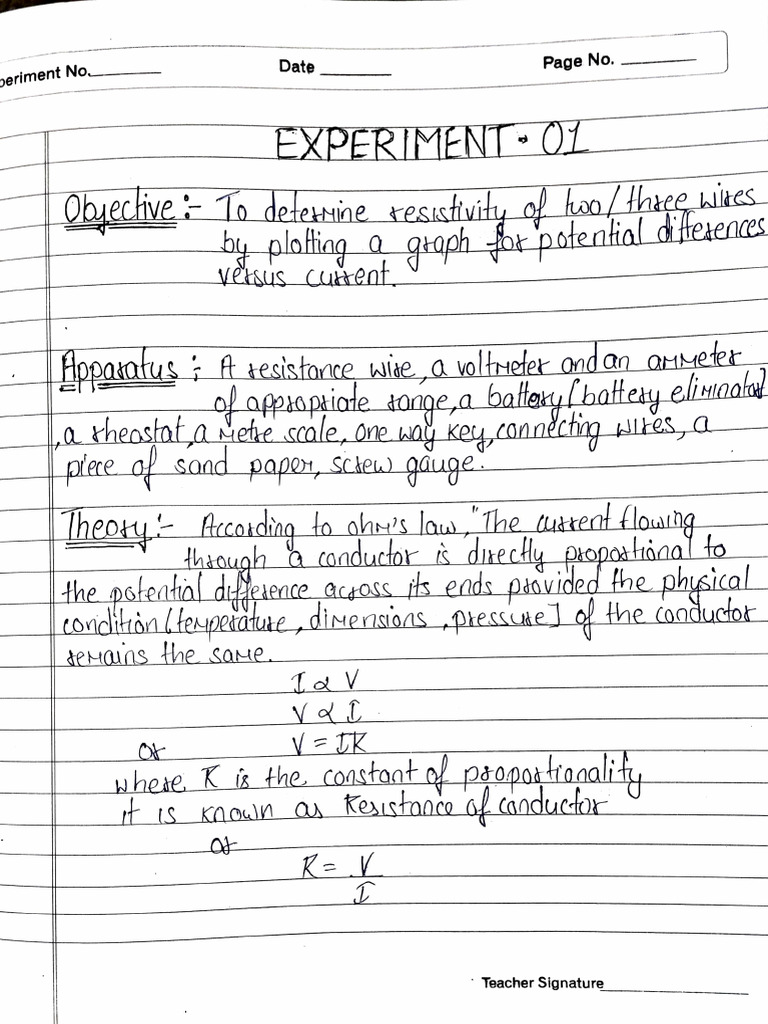 periment No.
Date
Page No.
EXPERIMENT - 01
Objective :- To determine resistivity of two/three wires
by plotting a graph for potential differences
versus current.
Apparatus : A resistance wire, a voltmeter and an ammeter
of appropriate range, a battery [battery eliminator]
, a rheostat, a metre scale, one way key, connecting wires, a
piece of sand paper, screw gauge.
Theory :- According to ohm's law, "The current flowing
through a conductor is directly proportional to
the potential difference across its ends provided the physical
condition [temperature, dimensions, pressure] of the conductor
remains the same.
I ∝ V
V ∝ I
or V = IR
where R is the constant of proportionality
it is known as Resistance of conductor
or
R = V
I
Teacher Signature